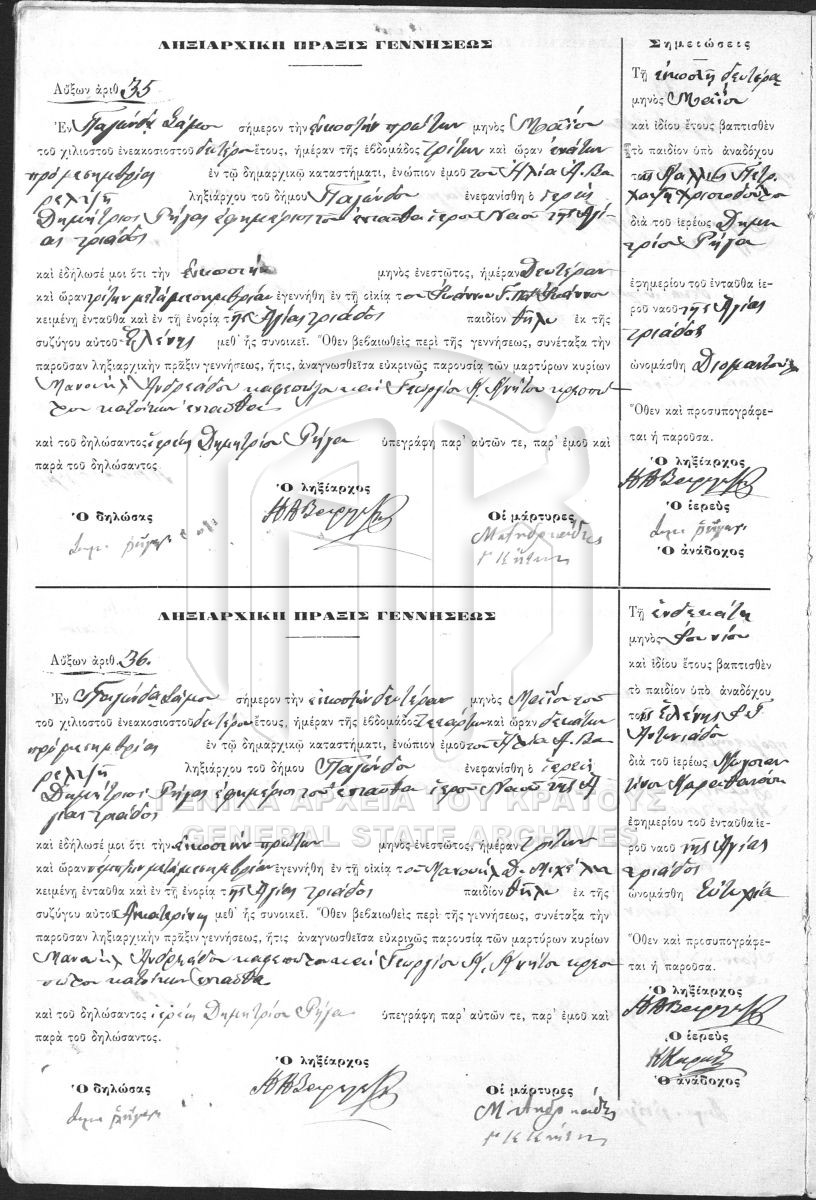 ΛΗΞΙΑΡΧΙΚΗ ΠΡΑΞΙΣ ΓΕΝΝΗΣΕΩΣ
Αὔξων ἀριθ. 35
Ἐν Παγώνδᾳ Σάμου σήμερον τὴν εἰκοστὴν πρώτην μηνὸς Μαΐου
τοῦ χιλιοστοῦ ἐνεακοσιοστοῦ δευτέρου ἔτους, ἡμέραν τῆς ἑβδομάδος τρίτην καὶ ὥραν ἐνάτην
πρὸ μεσημβρίας ἐν τῷ δημαρχικῷ καταστήματι, ἐνώπιον ἐμοῦ τοῦ Ἠλία Α. Βα
ρελτζῆ ληξιάρχου τοῦ δήμου Παγώνδου ἐνεφανίσθη ὁ ἱερεὺς
Δημήτριος Ρήγας ἐφημέριος τοῦ ἐνταῦθα ἱεροῦ Ναοῦ τῆς Ἁγί
ας τριάδος
καὶ ἐδήλωσέ μοι ὅτι τὴν εἰκοστὴν μηνὸς ἐνεστῶτος, ἡμέραν Δευτέραν
καὶ ὥραν τρίτην μετὰ μεσημβρίαν ἐγεννήθη ἐν τῇ οἰκίᾳ τοῦ Ἰωάννου Γ. Ἰωάννου
κειμένῃ ἐνταῦθα καὶ ἐν τῇ ἐνορίᾳ τῆς Ἁγίας τριάδος παιδίον θῆλυ ἐκ τῆς
συζύγου αὐτοῦ Ἑλένης μεθ᾽ ἧς συνοικεῖ. Ὅθεν βεβαιωθεὶς περὶ τῆς γεννήσεως, συνέταξα τὴν
παροῦσαν ληξιαρχικὴν πρᾶξιν γεννήσεως, ἥτις, ἀναγνωσθεῖσα εὐκρινῶς παρουσίᾳ τῶν μαρτύρων κυρίων
Μανουὴλ Ἀνδρεάδου καφεπώλου καὶ Γεωργίου Κ. Κνήτου κρεοπώ
λου κατοίκων ἐνταῦθα
καὶ τοῦ δηλώσαντος ἱερέως Δημητρίου Ρήγα ὑπεγράφη παρ᾽ αὐτῶν τε, παρ᾽ ἐμοῦ καὶ
παρὰ τοῦ δηλώσαντος
Ὁ ληξίαρχος
Ὁ δηλώσας
Οἱ μάρτυρες
Μ Ανδρεάδης
Γ Κ Κνήτου
Σημειώσεις
Τῇ εἰκοστῇ δευτέρᾳ
μηνὸς Μαΐου
καὶ ἰδίου ἔτους βαπτισθὲν
τὸ παιδίον ὑπὸ ἀναδόχου
τῆς Καλλιῆς Πετρ.
Χατζῆ Χριστοδούλου
διὰ τοῦ ἱερέως Δημη
τρίου Ρήγα
ἐφημερίου τοῦ ἐνταῦθα ἱε-
ροῦ ναοῦ τῆς Ἁγίας
τριάδος
ὠνομάσθη Διαμαντούλα
Ὅθεν καὶ προσυπογράφε-
ται ἡ παροῦσα.
Ὁ ληξίαρχος
Ὁ ἱερεὺς
Ὁ ἀνάδοχος
ΛΗΞΙΑΡΧΙΚΗ ΠΡΑΞΙΣ ΓΕΝΝΗΣΕΩΣ
Αὔξων ἀριθ. 36.
Ἐν Παγώνδᾳ Σάμου σήμερον τὴν εἰκοστὴν δευτέραν μηνὸς Μαΐου τοῦ
τοῦ χιλιοστοῦ ἐνεακοσιοστοῦ δευτέρου ἔτους, ἡμέραν τῆς ἑβδομάδος τετάρτην καὶ ὥραν δεκάτην
πρὸ μεσημβρίας ἐν τῷ δημαρχικῷ καταστήματι, ἐνώπιον ἐμοῦ τοῦ Ἠλία Α. Βα
ρελτζῆ ληξιάρχου τοῦ δήμου Παγώνδου ἐνεφανίσθη ὁ ἱερεὺς
Δημήτριος Ρήγας ἐφημέριος τοῦ ἐνταῦθα ἱεροῦ Ναοῦ τῆς Ἁ
γίας τριάδος
ΓΕΝΙΚΑ ΑΡΧΕΙΑ ΤΟΥ ΚΡΑΤΟΥΣ
GENERAL STATE ARCHIVES
καὶ ἐδήλωσέ μοι ὅτι τὴν εἰκοστὴν πρώτην μηνὸς ἐνεστῶτος, ἡμέραν τρίτην
καὶ ὥραν πέμπτην μετὰ μεσημβρίαν ἐγεννήθη ἐν τῇ οἰκίᾳ τοῦ Μανουὴλ Δ. Μιχέλλα
κειμένῃ ἐνταῦθα καὶ ἐν τῇ ἐνορίᾳ τῆς Ἁγίας τριάδος παιδίον θῆλυ ἐκ τῆς
συζύγου αὐτοῦ Αἰκατερίνης μεθ᾽ ἧς συνοικεῖ. Ὅθεν βεβαιωθεὶς περὶ τῆς γεννήσεως, συνέταξα τὴν
παροῦσαν ληξιαρχικὴν πρᾶξιν γεννήσεως, ἥτις ἀναγνωσθεῖσα εὐκρινῶς παρουσίᾳ τῶν μαρτύρων κυρίων
Μανουὴλ Ἀνδρεάδου καφεπώλου καὶ Γεωργίου Κ. Κνήτου κρεο
πώλου κατοίκων ἐνταῦθα
καὶ τοῦ δηλώσαντος ἱερέως Δημητρίου Ρήγα ὑπεγράφη παρ᾽ αὐτῶν τε, παρ᾽ ἐμοῦ καὶ
παρὰ τοῦ δηλώσαντος.
Ὁ ληξίαρχος
Ὁ δηλώσας
Οἱ μάρτυρες
Μ Ανδρεάδης
Γ Κ Κνήτου
Τῇ ἑνδεκάτῃ
μηνὸς Ἰουνίου
καὶ ἰδίου ἔτους βαπτισθὲν
τὸ παιδίον ὑπὸ ἀναδόχου
τῆς Ἑλένης
Ἀντωνιάδου
διὰ τοῦ ἱερέως Κωνσταν
τίνου
ἐφημερίου τοῦ ἐνταῦθα ἱε-
ροῦ ναοῦ τῆς Ἁγίας
τριάδος
ὠνομάσθη Εὐτυχία
Ὅθεν καὶ προσυπογράφε-
ται ἡ παροῦσα.
Ὁ ληξίαρχος
Ὁ ἱερεὺς
Ὁ ἀνάδοχος